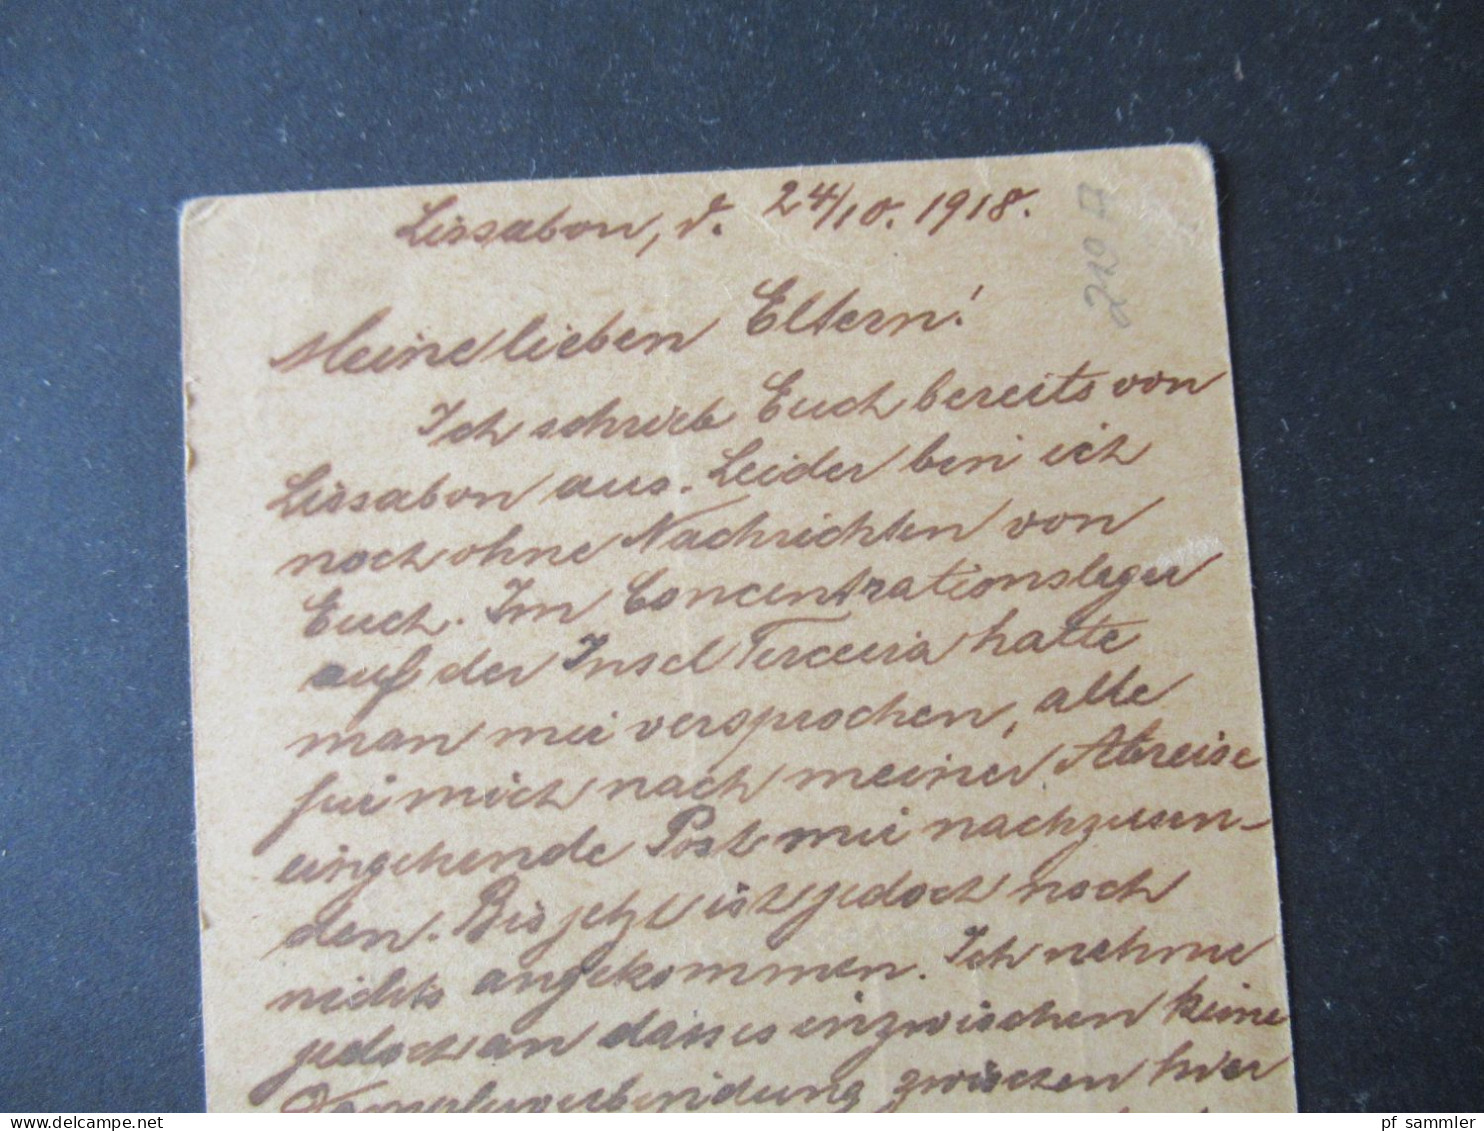 Lissabon, d. 24/10. 1918.
210 A
Meine lieben Eltern!
Ich schrieb Euch bereits von
Lissabon aus. Leider bin ich
noch ohne Nachrichten von
Euch. Im Concentrationslager
auf der Insel Terceira hatte
man mir versprochen, alle
für mich nach meiner Abreise
eingehende Post mir nachzusen-
den. Bis jetzt ist jedoch noch
nichts angekommen. Ich nehme
jedoch an dass es inzwischen keine
Dampferverbindung zwischen hier
pf_sammler